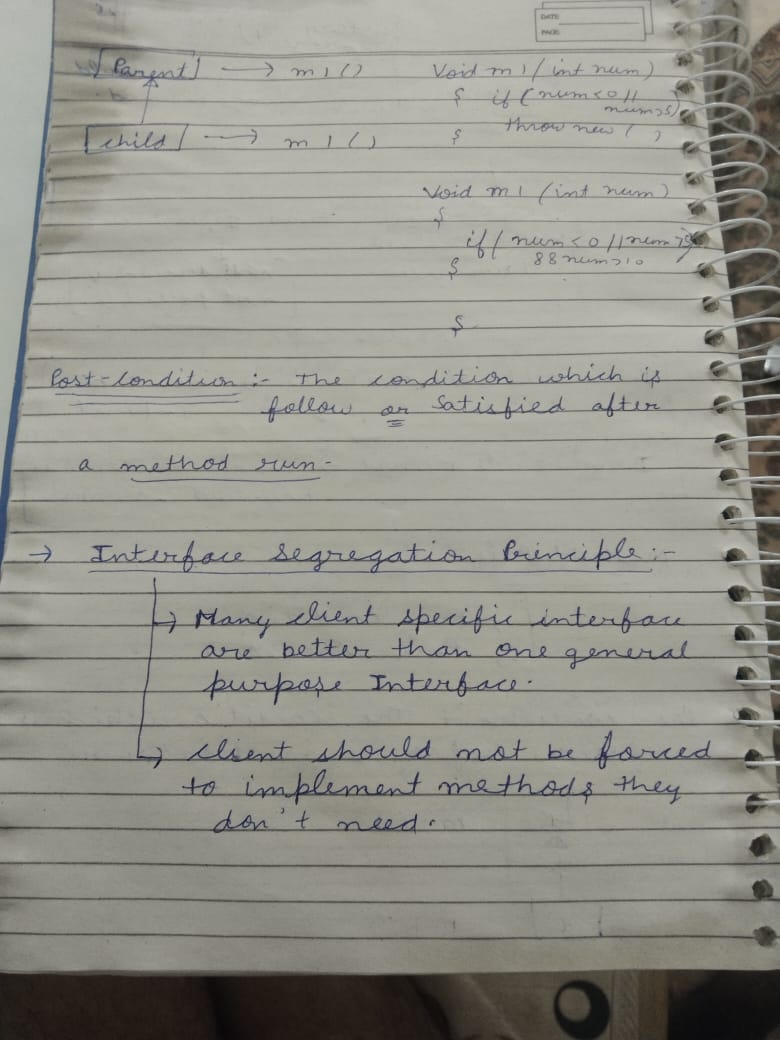 DATE
PAGE
[Parent] → m1() Void m1(int num)
{ if (num<0||
num>5)
[child] → m1() } throw new ( )
Void m1 (int num)
{
if( num<0 || num>5)
{ && num>10
}
Post-condition :- The condition which is
follow or Satisfied after
a method run-
→ Interface Segregation Principle :-
↳ Many client specific interface
are better than one general
purpose Interface.
↳ client should not be forced
to implement methods they
don't need.